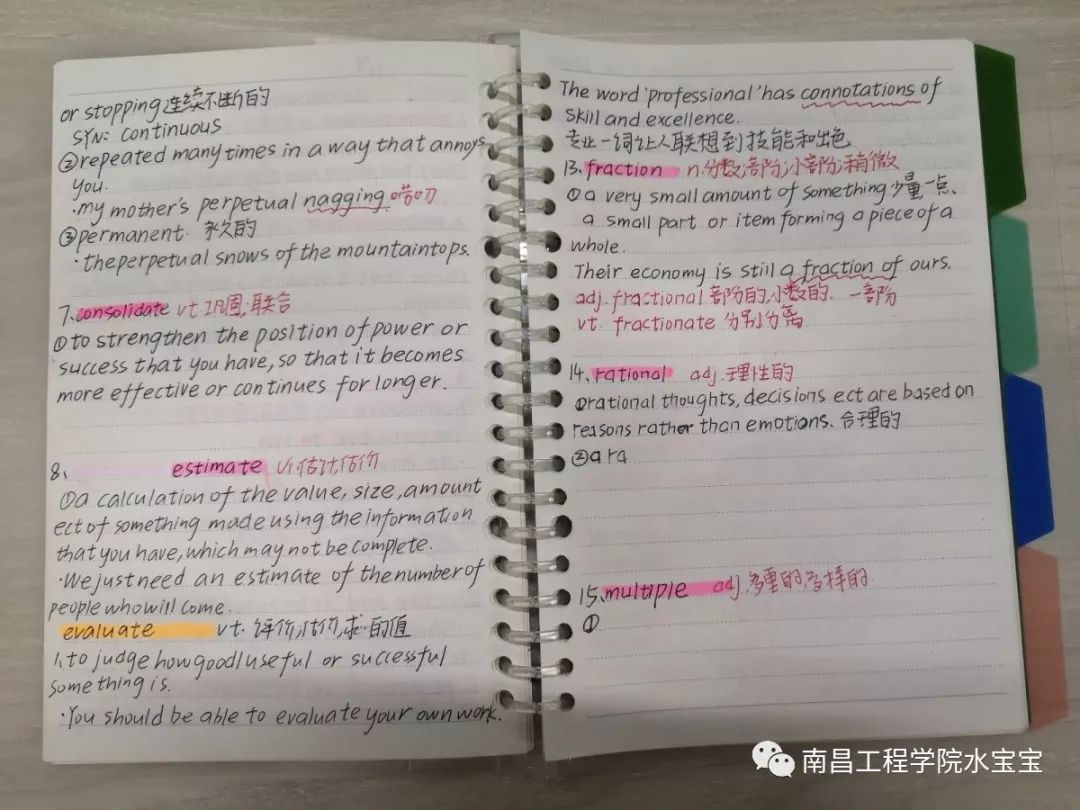 or stopping 连续不断的
SYN: continuous
②repeated many times in a way that annoys
you.
·my mother's perpetual nagging 唠叨
③permanent. 永久的
·the perpetual snows of the mountaintops.
7、consolidate vt.巩固;联合
①to strengthen the position of power or
success that you have, so that it becomes
more effective or continues for longer.
8、 estimate v.估计估价
①a calculation of the value, size, amount
ect of something made using the information
that you have, which may not be complete.
·We just need an estimate of the number of
people who will come.
evaluate vt. 评价,估价,求·的值
1、to judge how good useful or successful
something is.
·You should be able to evaluate your own work.
The word 'professional' has connotations of
skill and excellence.
专业一词让人联想到技能和出色
13、fraction n.分数;部份;小部分;稍微
①a very small amount of something 少量一点、
a small part or item forming a piece of a
whole.
Their economy is still a fraction of ours.
adj. fractional 部份的,小数的. 一部份
vt. fractionate 分别分离
14、rational adj.理性的
①rational thoughts, decisions ect are based on
reasons rather than emotions. 合理的
②a ra
15、multiple adj.多重的,多样的
①
南昌工程学院水宝宝